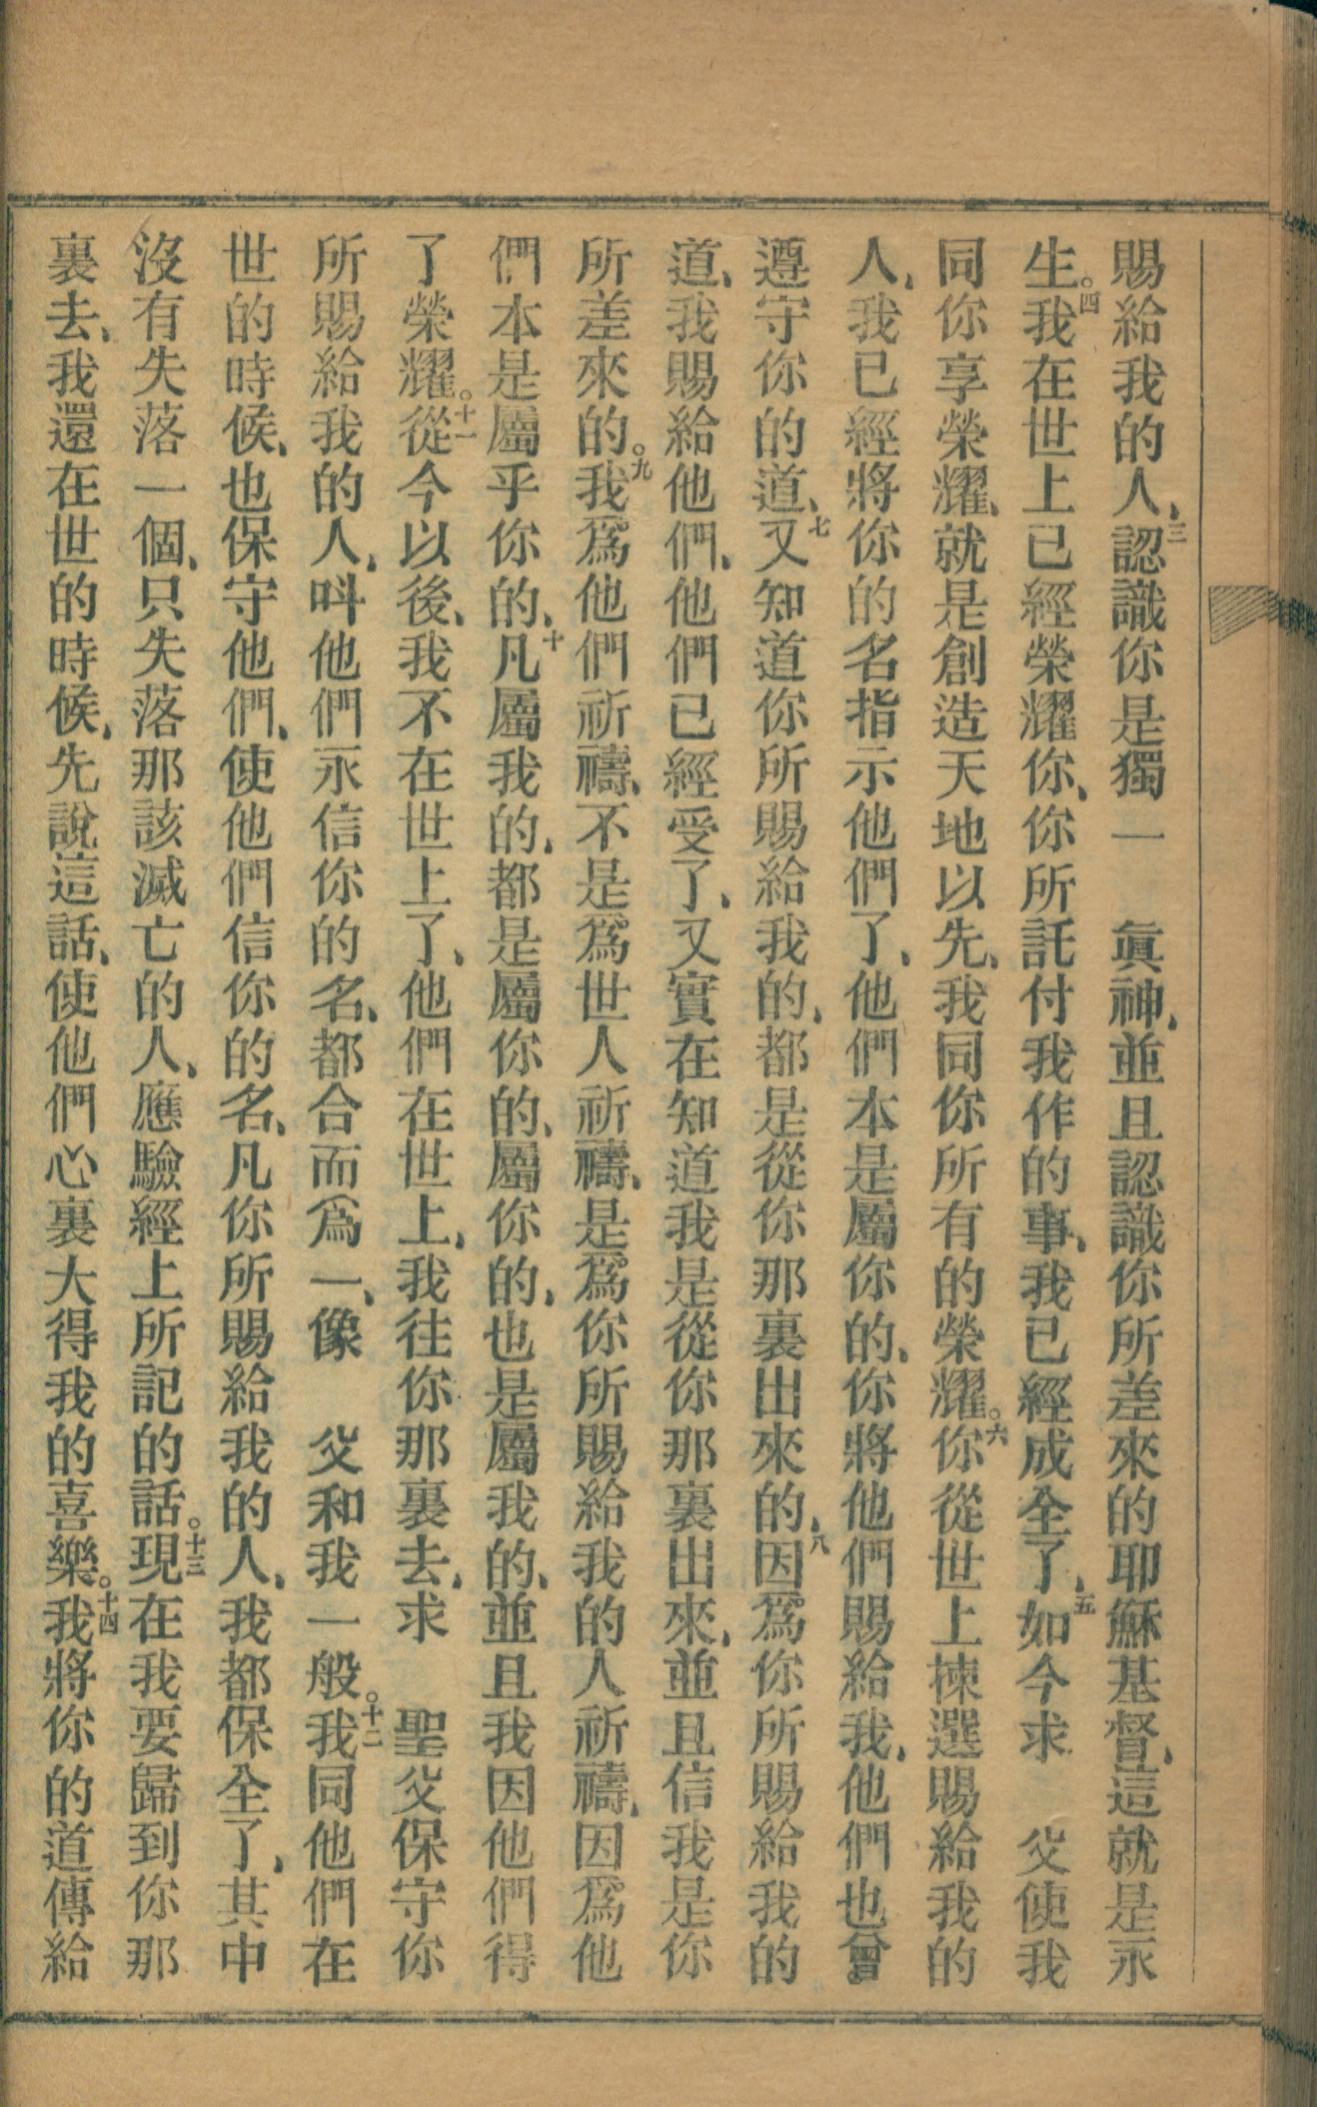 賜給我的人、三認識你是獨一　眞神、並且認識你所差來的耶穌基督、這就是永
生。四我在世上已經榮耀你、你所託付我作的事、我已經成全了、五如今求　父使我
同你享榮耀、就是創造天地以先、我同你所有的榮耀。六你從世上揀選賜給我的
人、我已經將你的名指示他們了、他們本是屬你的、你將他們賜給我、他們也曾
遵守你的道、七又知道你所賜給我的、都是從你那裏出來的、八因爲你所賜給我的
道、我賜給他們、他們已經受了、又實在知道我是從你那裏出來、並且信我是你
所差來的。九我爲他們祈禱、不是爲世人祈禱、是爲你所賜給我的人祈禱、因爲他
們本是屬乎你的、十凡屬我的、都是屬你的、屬你的、也是屬我的、並且我因他們得
了榮耀。十一從今以後、我不在世上了、他們在世上、我往你那裏去、求　聖父保守你
所賜給我的人、呌他們永信你的名、都合而爲一、像　父和我一般。十二我同他們在
世的時候、也保守他們、使他們信你的名、凡你所賜給我的人、我都保全了、其中
沒有失落一個、只失落那該滅亡的人、應驗經上所記的話。十三現在我要歸到你那
裏去、我還在世的時候、先說這話、使他們心裏大得我的喜樂。十四我將你的道傳給